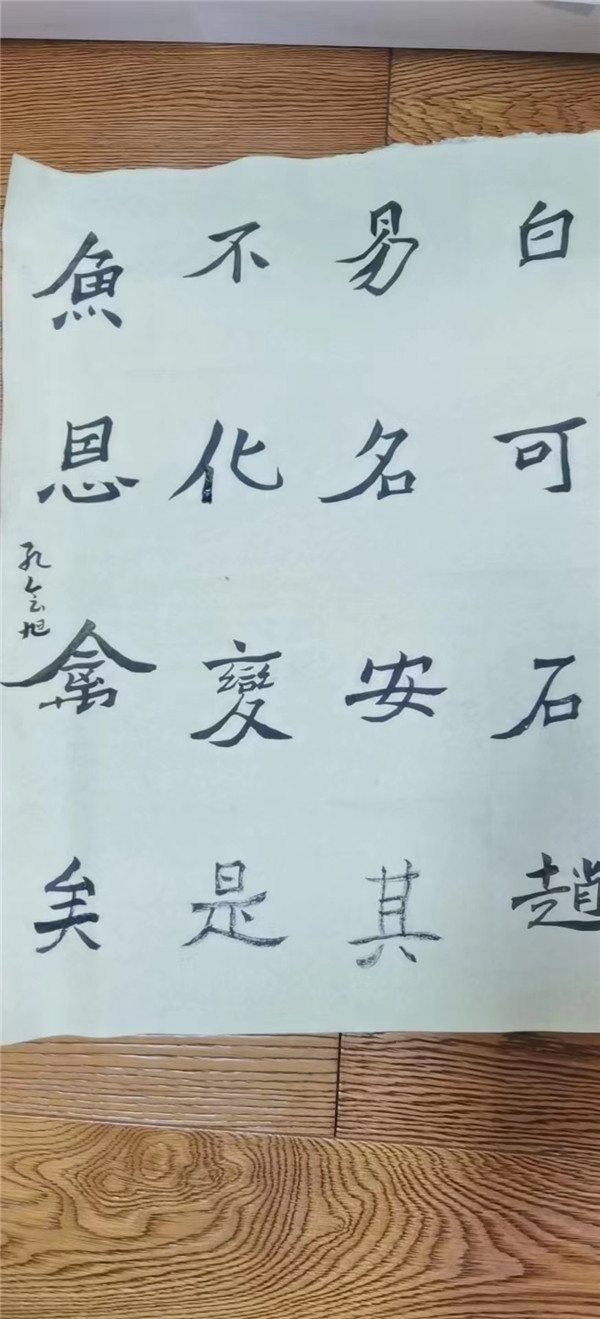 白可石趙
易名安其
不化變是
魚恩禽矣
孔令旭